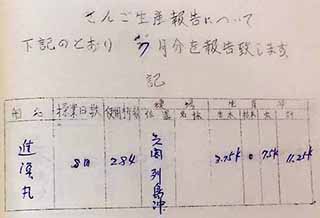 さんご生産報告について
下記のとおり 7月分を報告致します
記
船名 操業日数 使用
漁場
位置
生産
生木 枯木 計
進漁丸 8日 284 列島沖 3.75K 0 7.5K 11.25K